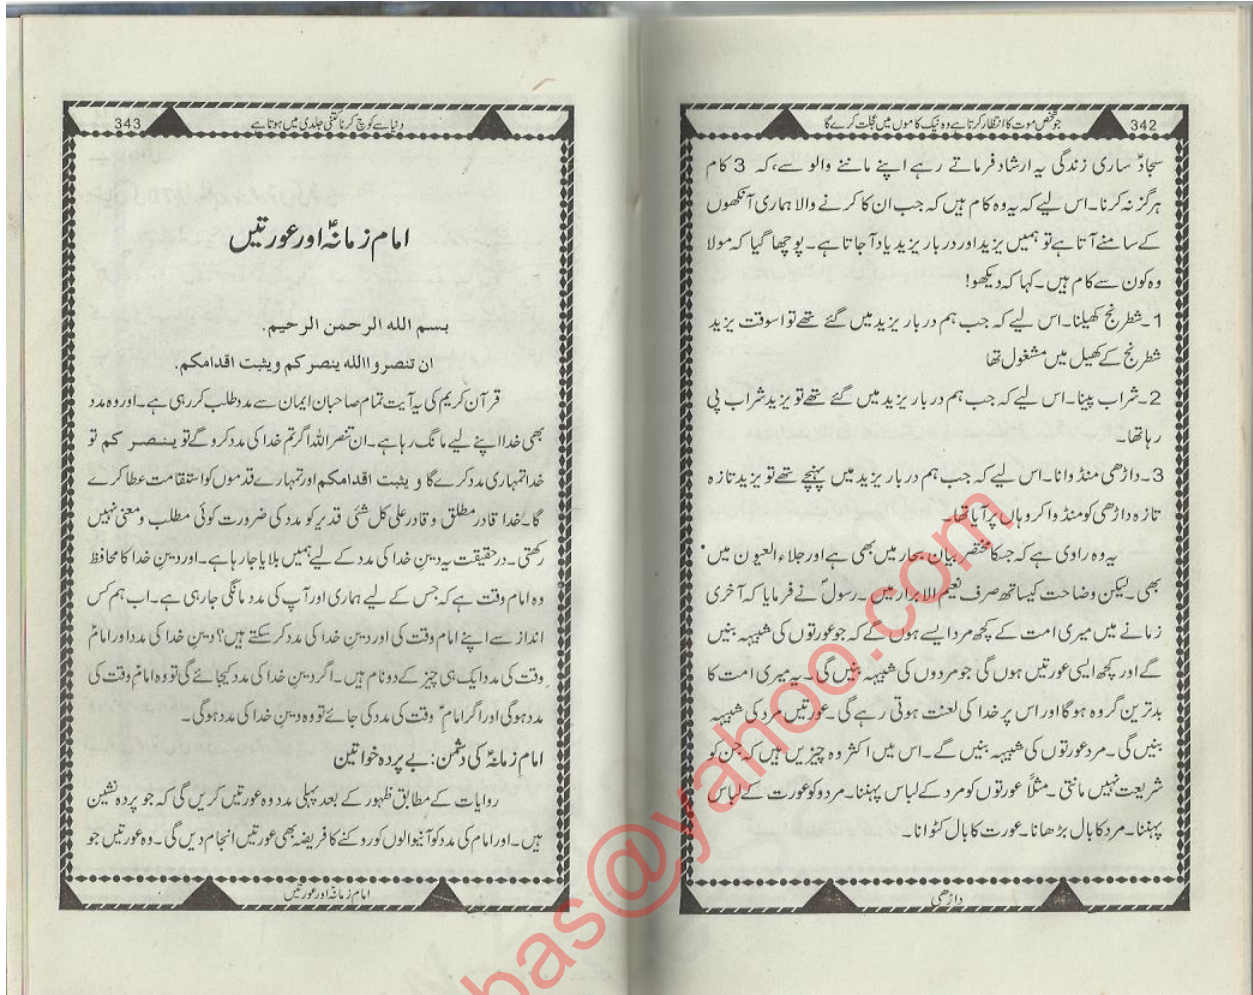 342
جو شخص موت کا انتظار کرتا ہے وہ نیک کاموں میں عجلت کرے گا
سجادؑ ساری زندگی یہ ارشاد فرماتے رہے اپنے ماننے والو سے، کہ 3 کام
ہرگز نہ کرنا۔ اس لیے کہ یہ وہ کام ہیں کہ جب ان کا کرنے والا ہماری آنکھوں
کے سامنے آتا ہے تو ہمیں یزید اور دربار یزید یاد آ جاتا ہے۔ پوچھا گیا کہ مولا
وہ کون سے کام ہیں۔ کہا کہ دیکھو!
1۔ شطرنج کھیلنا۔ اس لیے کہ جب ہم دربار یزید میں گئے تھے تو اسوقت یزید
شطرنج کے کھیل میں مشغول تھا
2۔ شراب پینا۔ اس لیے کہ جب ہم دربار یزید میں گئے تھے تو یزید شراب پی
رہا تھا۔
3۔ داڑھی منڈوانا۔ اس لیے کہ جب ہم دربار یزید میں پہنچے تھے تو یزید تازہ
تازہ داڑھی کو منڈوا کر وہاں پر آیا تھا۔
یہ وہ راوی ہے کہ جسکا مختصر بیان بحار میں بھی ہے اور جلاء العیون میں
بھی۔ لیکن وضاحت کیساتھ صرف نعیم الابرار میں۔ رسولؐ نے فرمایا کہ آخری
زمانے میں میری امت کے کچھ مرد ایسے ہوں گے کہ جو عورتوں کی شبیہہ بنیں
گے اور کچھ ایسی عورتیں ہوں گی جو مردوں کی شبیہہ بنیں گی۔ یہ میری امت کا
بدترین گروہ ہو گا اور اس پر خدا کی لعنت ہوتی رہے گی۔ عورتیں مرد کی شبیہہ
بنیں گی۔ مرد عورتوں کی شبیہہ بنیں گے۔ اس میں اکثر وہ چیزیں ہیں کہ جن کو
شریعت نہیں مانتی۔ مثلاً عورتوں کو مرد کے لباس پہننا۔ مرد کو عورت کے لباس
پہننا۔ مرد کا بال بڑھانا۔ عورت کا بال کٹوانا۔
داڑھی
343
دنیا سے کوچ کرنا کتنی جلدی میں ہوتا ہے
امام زمانہؑ اور عورتیں
بسم الله الرحمن الرحيم.
ان تنصروا الله ينصر كم ويثبت اقدامكم.
قرآن کریم کی یہ آیت تمام صاحبان ایمان سے مدد طلب کر رہی ہے۔ اور وہ مدد
بھی خدا اپنے لیے مانگ رہا ہے۔ ان تنصر اللہ اگر تم خدا کی مدد کرو گے تو ینصر کم تو
خدا تمہاری مدد کرے گا و یثبت اقدامکم اور تمہارے قدموں کو استقامت عطا کرے
گا۔ خدا قادر مطلق و قادر علی کل شئی قدیر کو مدد کی ضرورت کوئی مطلب و معنی نہیں
رکھتی۔ در حقیقت یہ دینِ خدا کی مدد کے لیے ہمیں بلایا جا رہا ہے۔ اور دینِ خدا کا محافظ
وہ امام وقت ہے کہ جس کے لیے ہماری اور آپ کی مدد مانگی جا رہی ہے۔ اب ہم کس
انداز سے اپنے امام وقت کی اور دینِ خدا کی مدد کر سکتے ہیں؟ دینِ خدا کی مدد اور امامؑ
وقت کی مدد ایک ہی چیز کے دو نام ہیں۔ اگر دینِ خدا کی مدد کیجائے گی تو وہ امامؑ وقت کی
مدد ہو گی اور اگر امامؑ وقت کی مدد کی جائے تو وہ دینِ خدا کی مدد ہو گی۔
امامِ زمانہؑ کی دشمن: بے پردہ خواتین
روایات کے مطابق ظہور کے بعد پہلی مدد وہ عورتیں کریں گی کہ جو پردہ نشین
ہیں۔ اور امام کی مدد کو آنیوالوں کو روکنے کا فریضہ بھی عورتیں انجام دیں گی۔ وہ عورتیں جو
امام زمانہؑ اور عورتیں
bas@yahoo.com